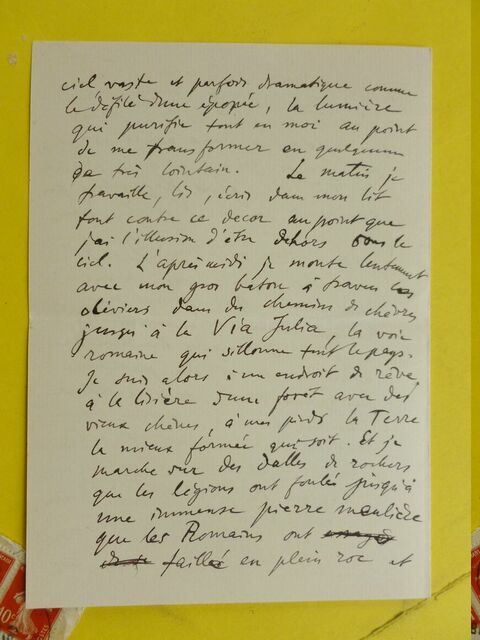 ciel vaste et parfois dramatique comme
le défilé d'une épopée, la lumière
qui purifie tout en moi au point
de me transformer en quelqu'un
de très lointain. Le matin je
travaille, lis, écris dans mon lit
tout contre ce decor au point que
j'ai l'illusion d'être dehors sous le
ciel. L'après midi je monte lentement
avec mon gros bâton à travers les
oliviers dans des chemins de chèvres
jusqu'à la Via Julia, la voie
romaine qui sillonne tout le pays.
Je suis alors à un endroit de rêve
à la lisière d'une forêt avec des
vieux chênes, à mes pieds la Terre
la mieux formée qui soit. Et je
marche sur des dalles de rochers
que les légions ont foulés jusqu'à
une immense pierre meulière
que les Romains ont
taillée en plein roc et
10c